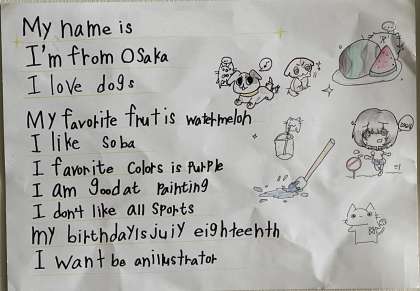 My name is
I'm from Osaka
I love dogs
My faforite frut is watermelon
I like soba
I faforite colors is Purple
I am good at Painting
I don't like all sports
my birthdayIsJuiy eighteehth
I want be anillustrator